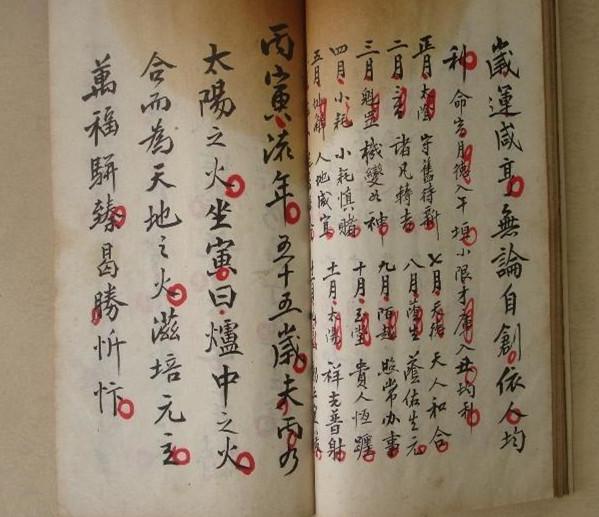 歲運咸亨無論自創依人均
利命宮月德入午垣小限才庫入丑均利
正月太陰守舊待新
七月天德天人和合
二月 諸凡轉吉
八月蔭生蔭佑生元
三月魁罡機變如神
九月陌越照常办事
四月小耗小耗慎賭
十月玉堂貴人恆躔
五月 人地咸宜
十一月太陽祥光普射
丙寅流年五十五歲夫丙乃
太陽之火坐寅曰爐中之火
合而為天地之火滋培元主
萬福駢臻曷勝忻忭